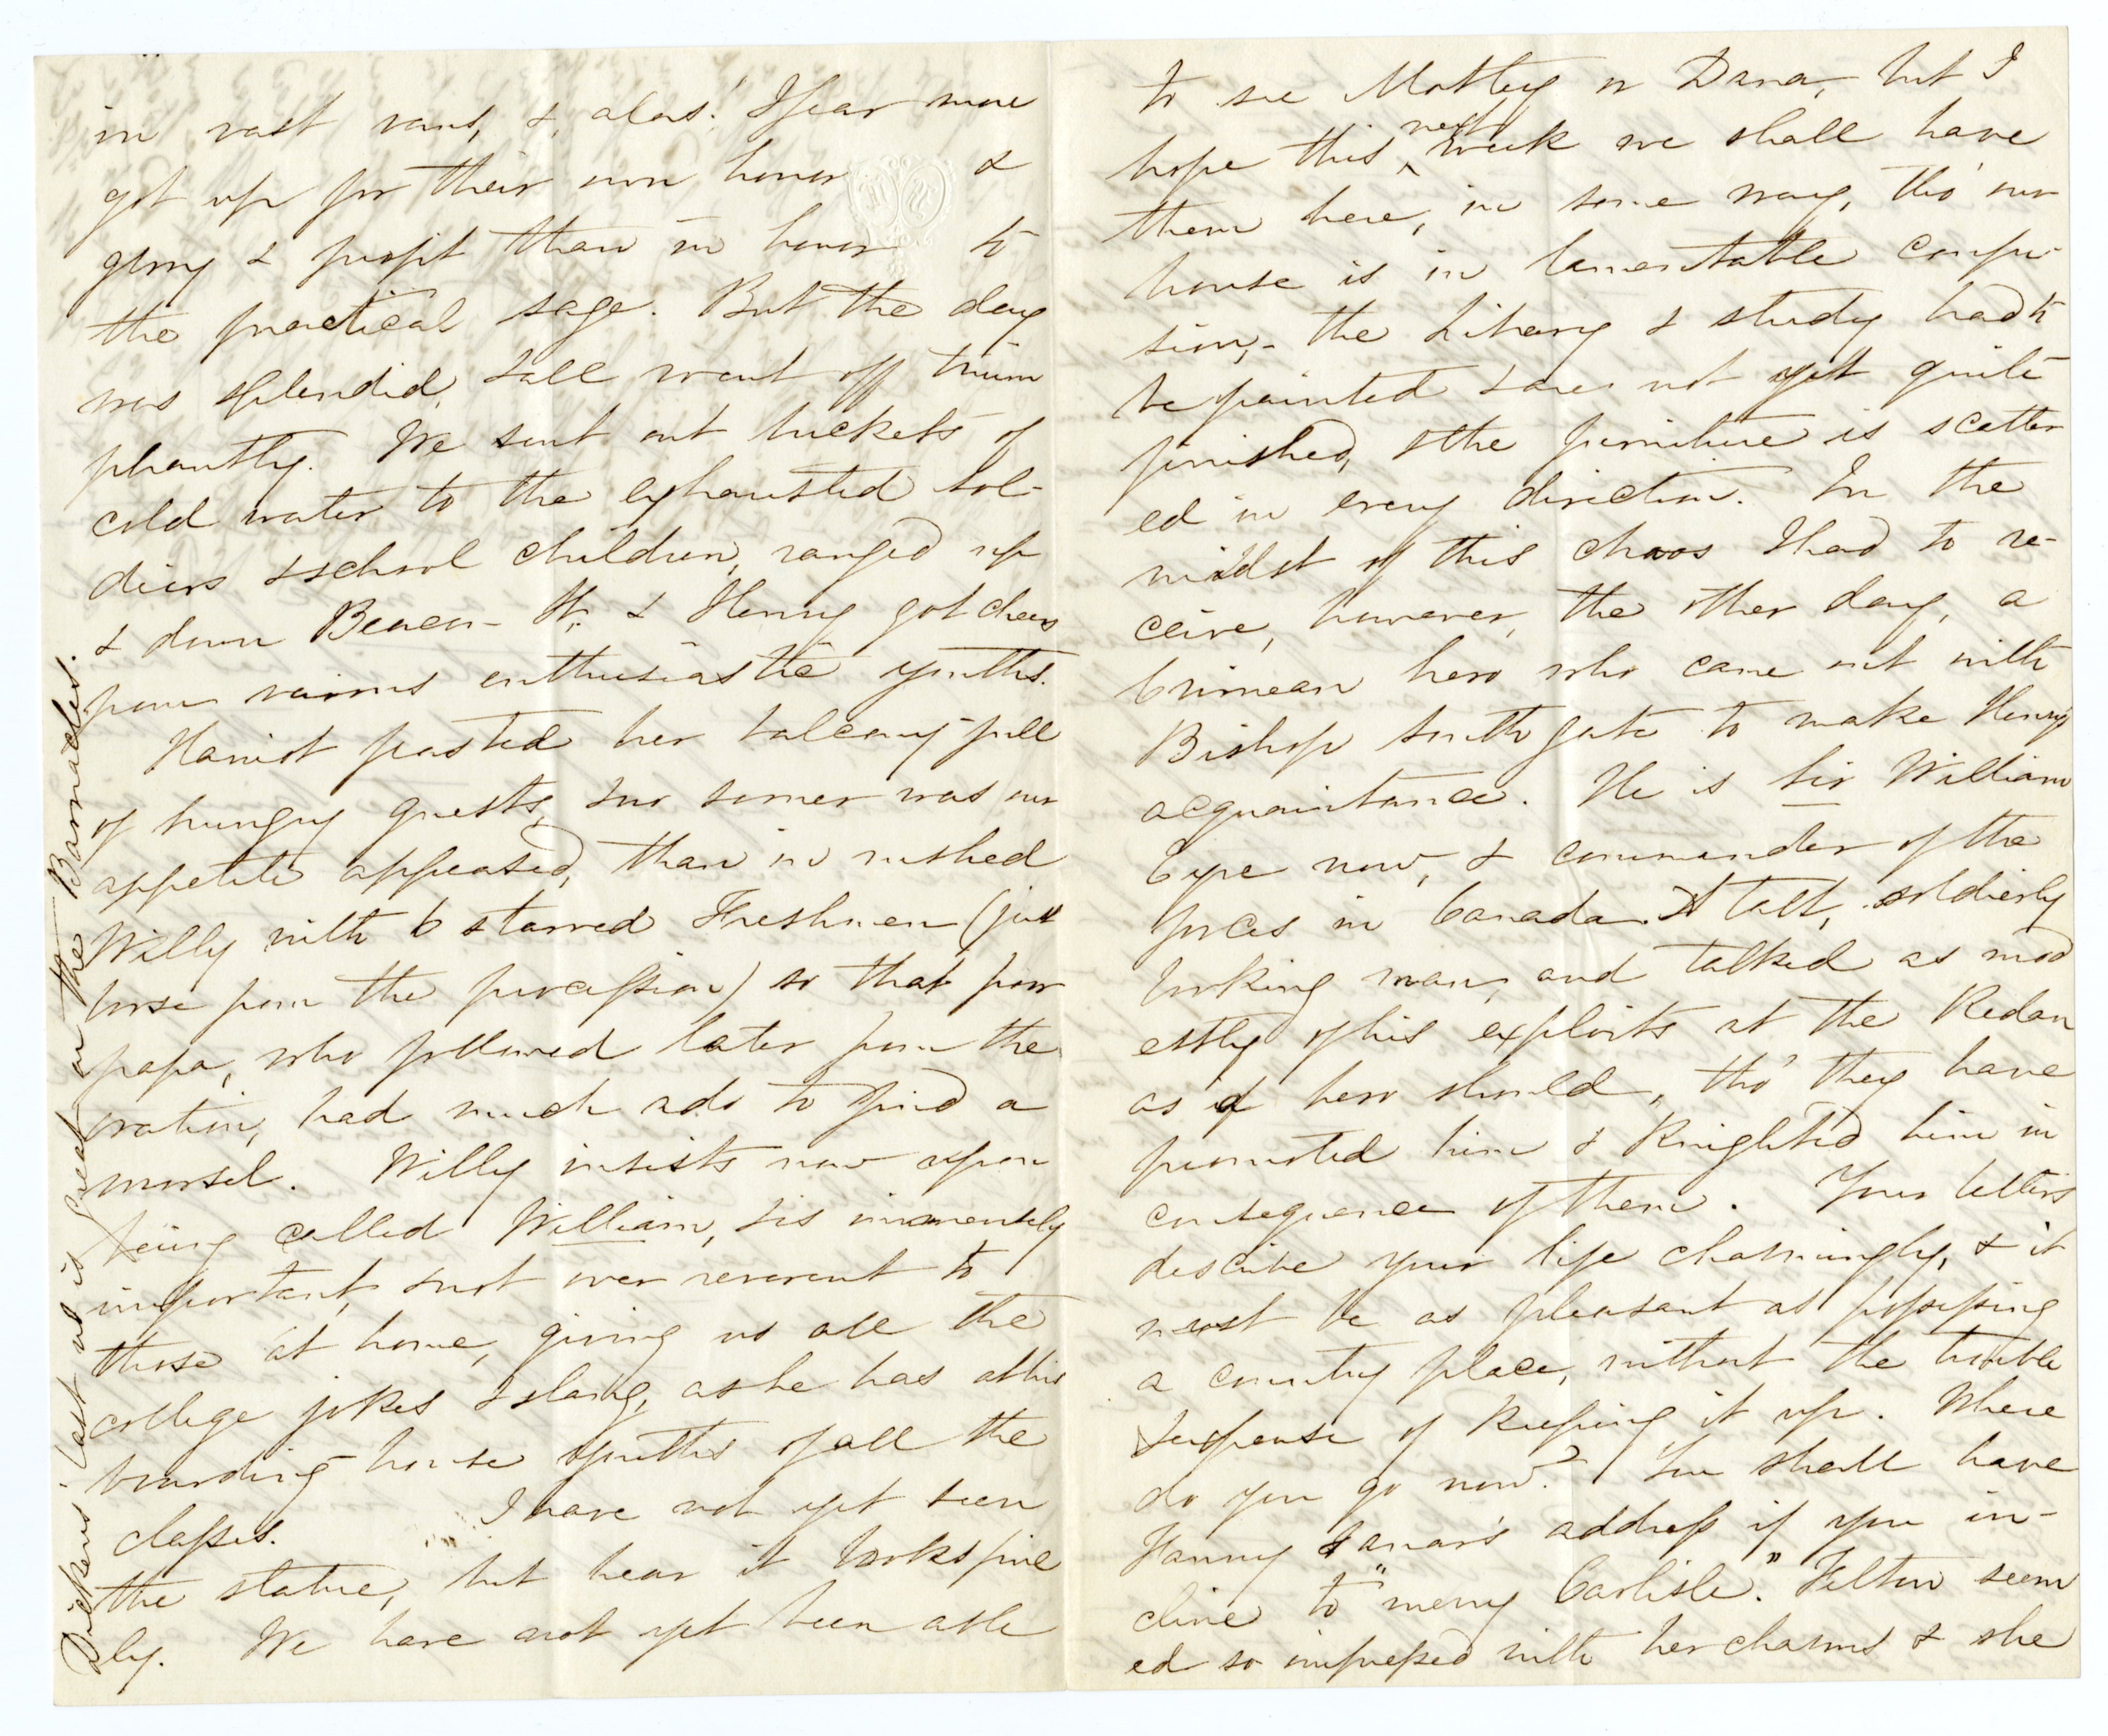 in vast vans, &, alas! I fear more
got up for their own honor &
glory & profit than in honor to
the practical sage. But the day
was splendid, & all went off trium
phantly. We sent out buckets of
cold water to the exhausted sol-
diers & school children, ranged up
& down Beacon St. & Henry got cheers
from various enthusiastic youths.
Harriot feasted her balcony-full
of hungry guests, & no sooner was our
appetite appeased, than in rushed
Willy with 6 starved Freshmen (just
loose from the procession) so that poor
papa, who followed later from the
oration, had much ado to find a
morsel. Willy insists now upon
being called William, & is immensely
important, & not over reverent to
those at home, giving us all the
college jokes & slang, as he has at his
boarding-house youths of all the
classes. I have not yet seen
the statue, but hear it looks fine
ly. We have not yet been able
Dickens' last no is great on the Barnacles.
to see Motley or Dana, but I
hope this next week we shall have
them here, in some way, tho' our
house is in lamentable confu-
sion,- the Library & study had to
be painted & are not yet quite
finished, & the furniture is scatter
ed in every direction. In the
midst of this chaos I had to re-
ceive, however, the other day, a
Crimean hero who came out with
Bishop Southgate to make Henry's
acquaintance. He is Sir William
Eyre now, & commander of the
forces in Canada. A tall, soldierly
looking man, and talked as mod
estly of his exploits at the Redan
as a hero should, tho' they have
promoted him & Knighted him in
consequence of them. Your letters
describe your life charmingly, & it
must be as pleasant as possessing
a country place, without the trouble
& expense of keeping it up. Where
do you go now? You shall have
Fanny address if you in-
cline to "merry Carlisle." Felton seem
ed so impressed with her charms & she